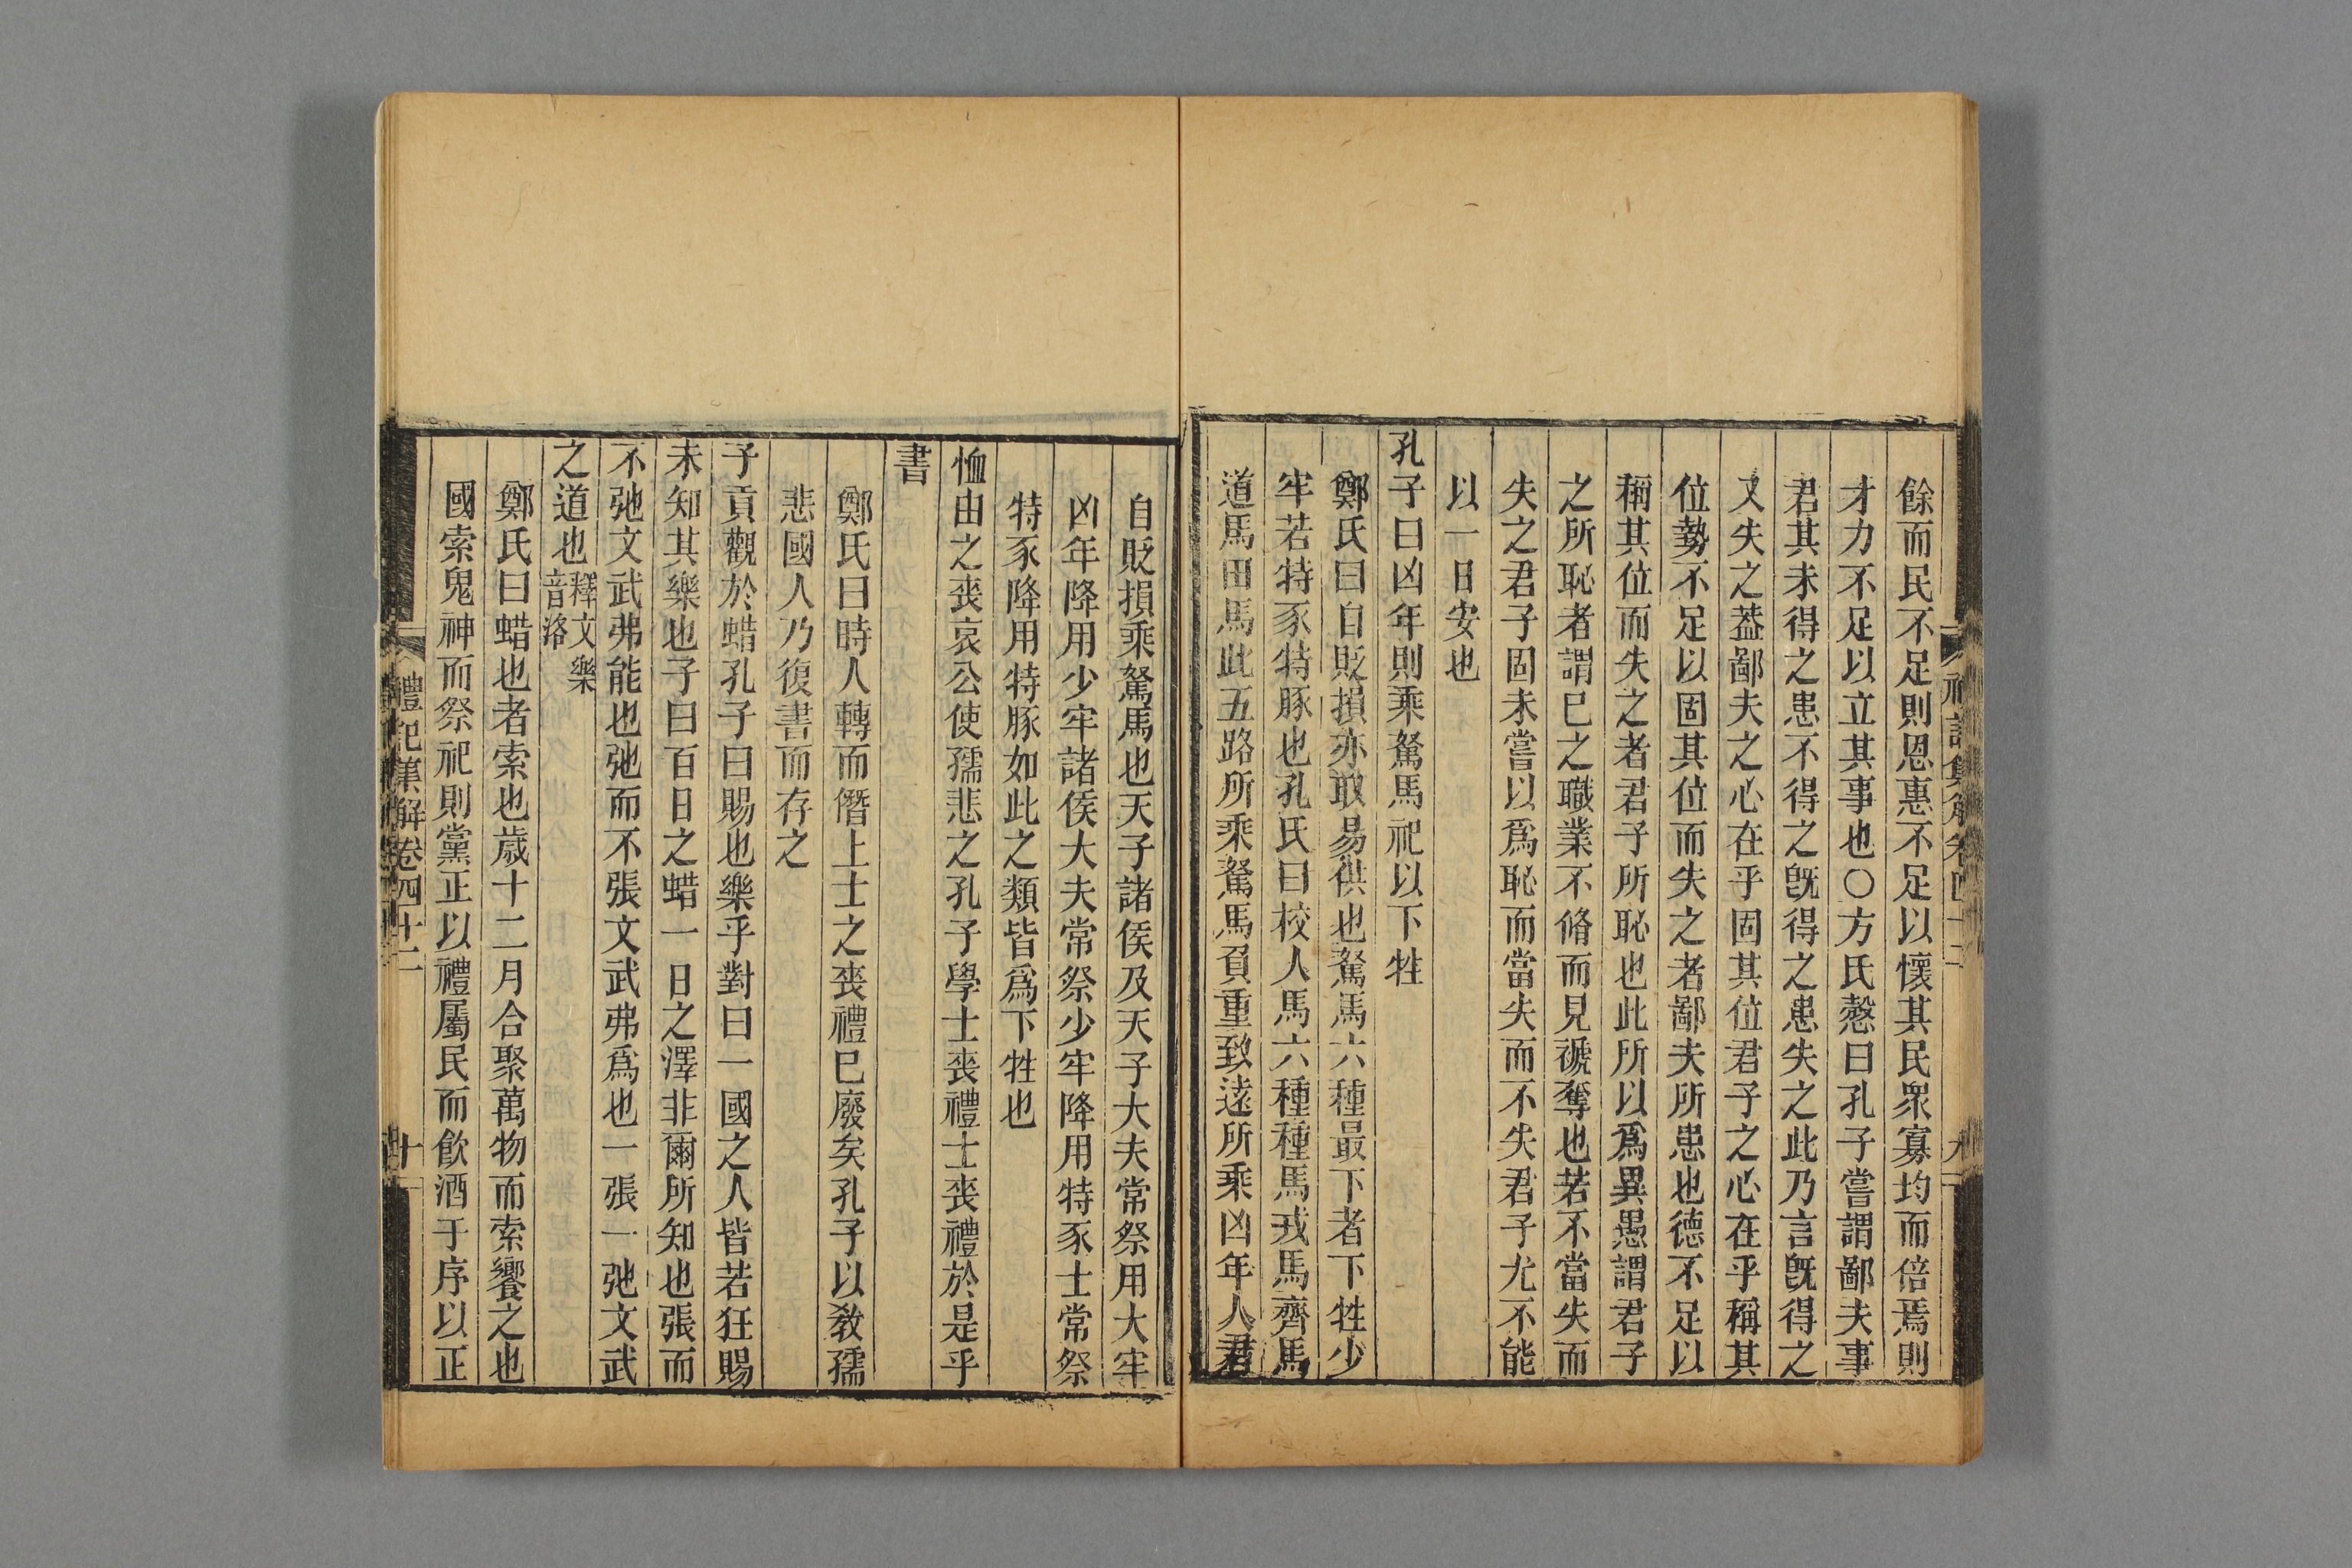 餘而民不足則恩惠不足以懷其民衆寡均而倍焉則
才力不足以立其事也○方氏慤曰孔子嘗謂鄙夫事
君其未得之患不得之旣得之患失之此乃言旣得之
又失之葢鄙夫之心在乎固其位君子之心在乎稱其
位勢不足以固其位而失之者鄙夫所患也德不足以
稱其位而失之者君子所恥也此所以爲異愚謂君子
之所恥者謂已之職業不脩而見褫奪也若不當失而
失之君子固未嘗以爲恥而當失而不失君子尤不能
以一日安也
孔子曰凶年則乘駑馬祀以下牲
鄭氏曰自貶損亦取易供也駑馬六種最下者下牲少
牢若特豕特豚也孔氏曰校人馬六種種馬戎馬齊馬
道馬田馬此五路所乘駑馬負重致遠所乘凶年人君
自貶損乘駑馬也天子諸侯及天子大夫常祭用大牢
凶年降用少牢諸侯大夫常祭少牢降用特豕士常祭
特豕降用特豚如此之類皆爲下牲也
恤由之喪哀公使孺悲之孔子學士喪禮士喪禮於是乎
書
鄭氏曰時人轉而僭上士之喪禮已廢矣孔子以敎孺
悲國人乃復書而存之
子貢觀於蜡孔子曰賜也樂乎對曰一國之人皆若狂賜
未知其樂也子曰百日之蜡一日之澤非爾所知也張而
不弛文武弗能也弛而不張文武弗爲也一張一弛文武
之道也釋文樂音洛
鄭氏曰蜡也者索也歲十二月合聚萬物而索饗之也
國索鬼神而祭祀則黨正以禮屬民而飮酒于序以正
禮記集解卷四十二
十